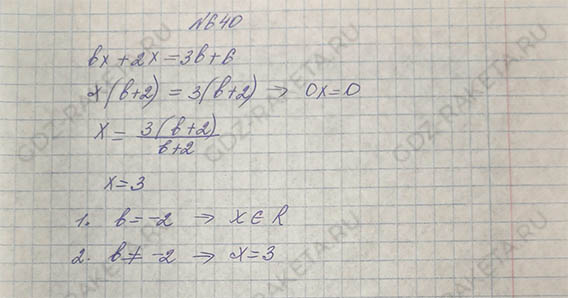 №640
вx + 2x = 3в + 6
x(в+2) = 3(в+2) → 0x = 0
x = 3(в+2) / в+2
x = 3
1. в = -2 → x ∈ R
2. в ≠ -2 → x = 3
GDZ-RAKETA.RU